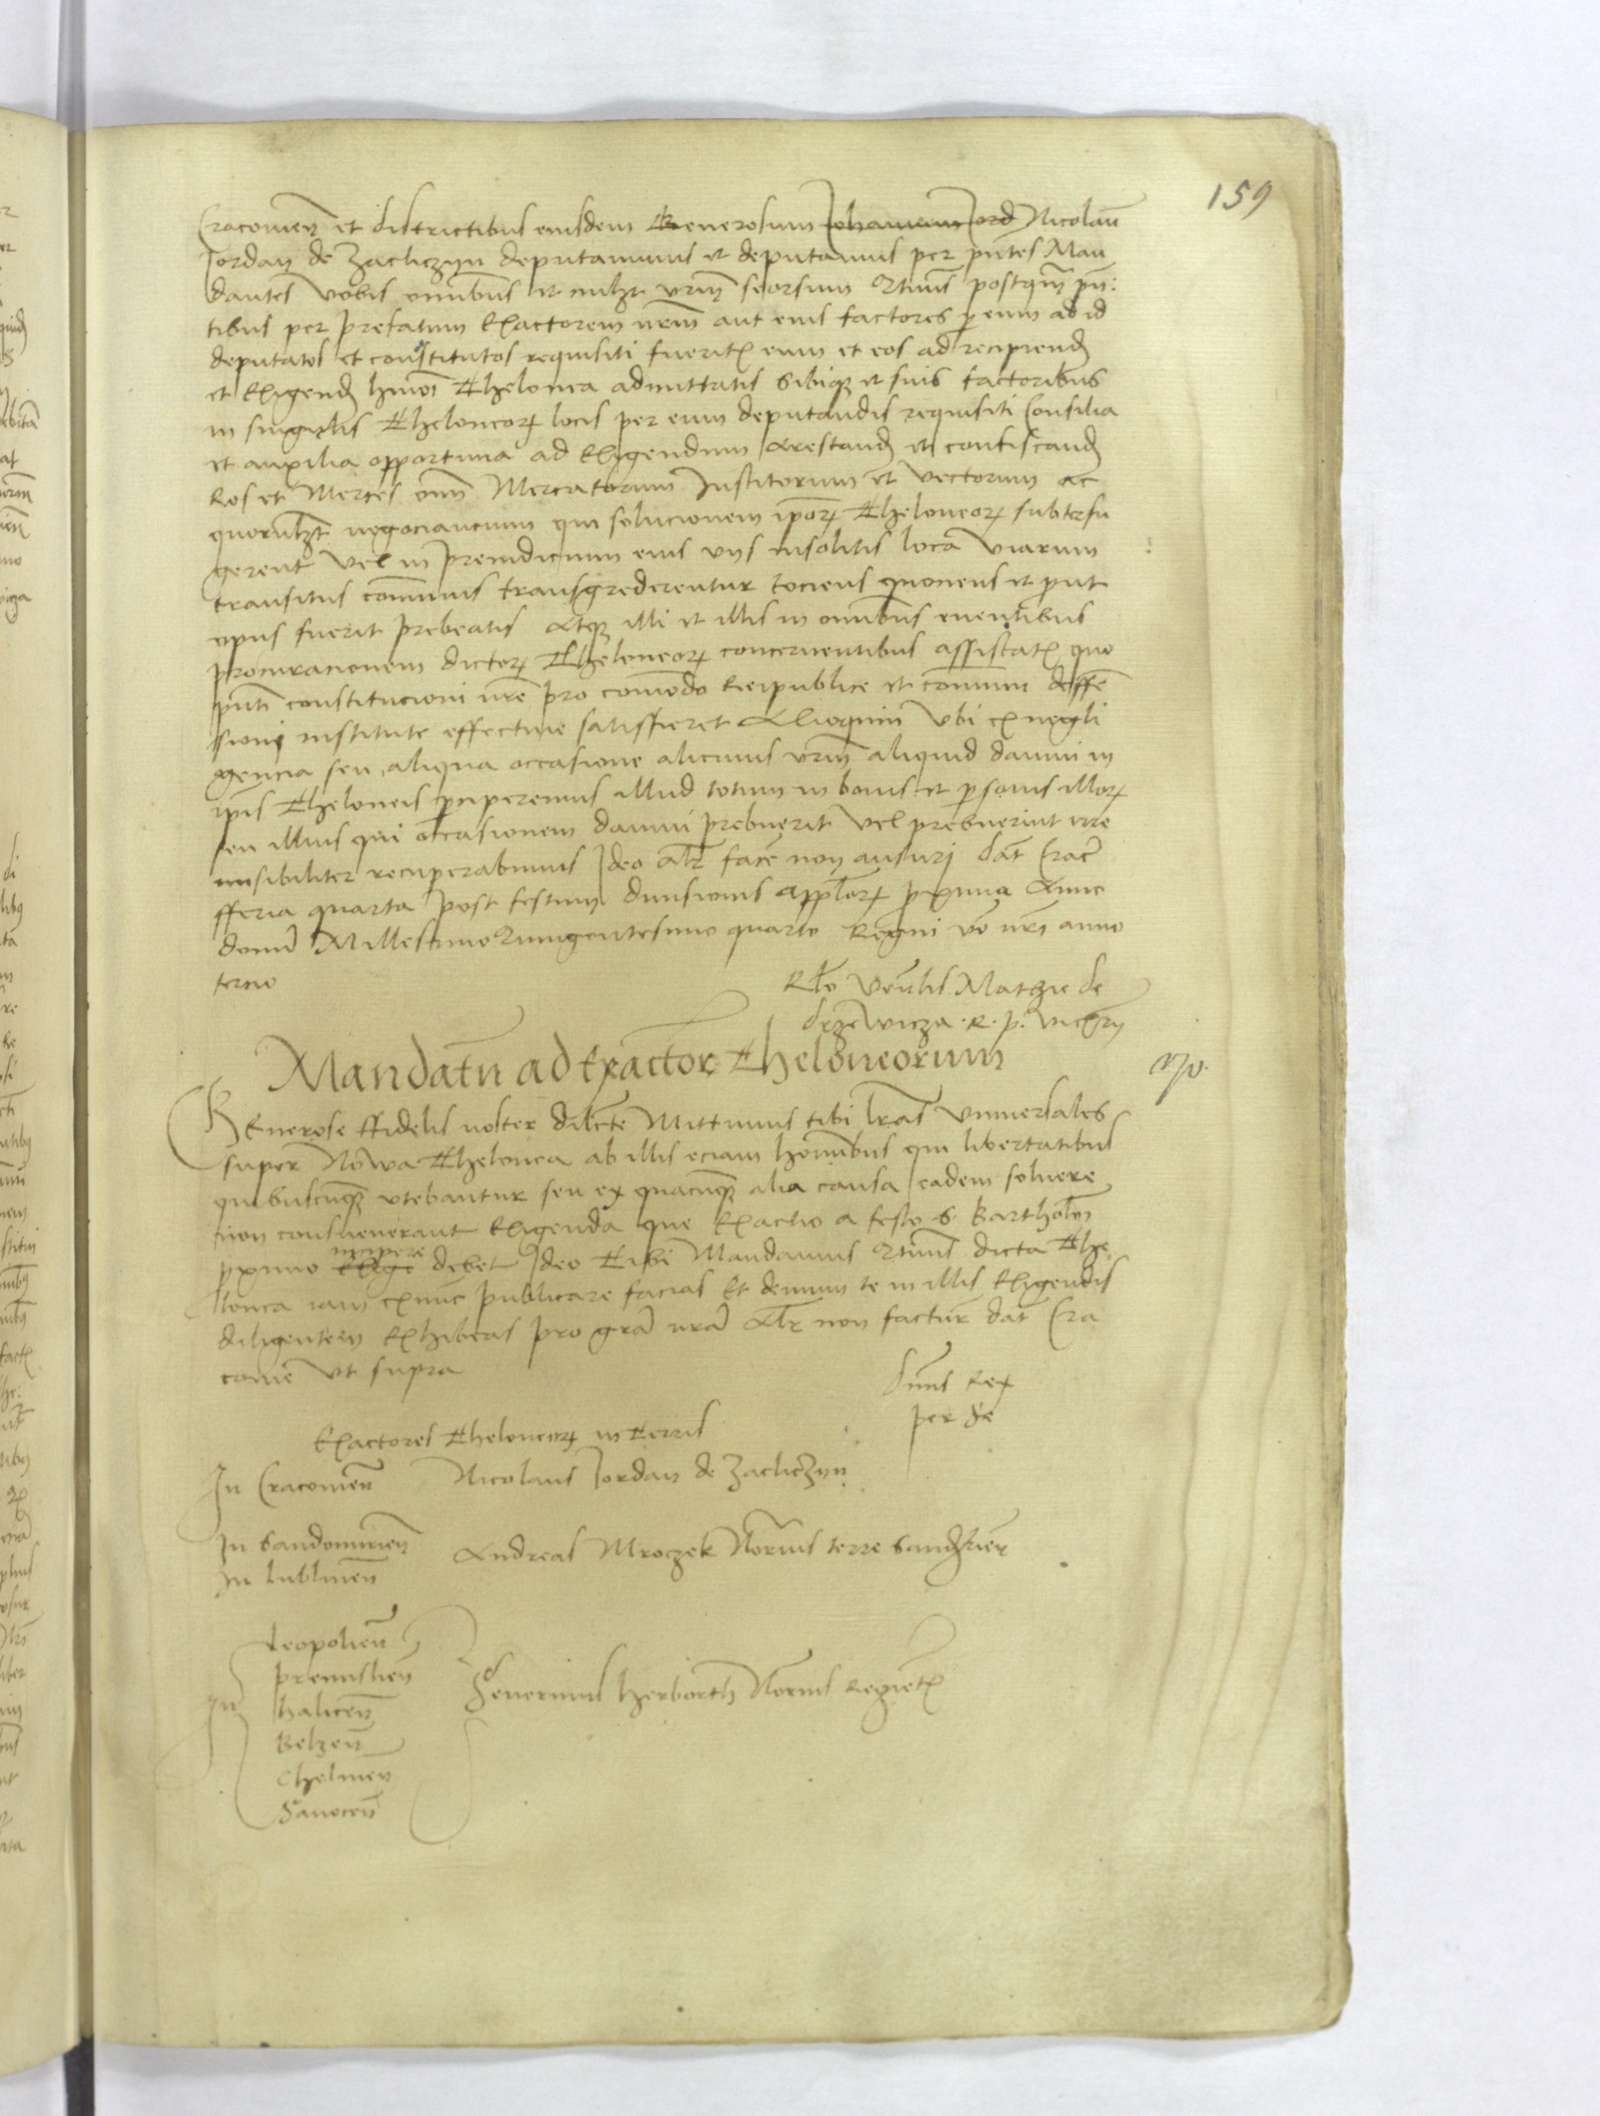 159
Cracovien̄ et districtibus eiusdem Generosum Johannem Jord Nicolaū
Jordan de Zacliczyn deputavimus et deputamus per pn̄tes Man
dantes vobis omnibus et cuilzt vrm̄ seorsum postqm̄ pn̄
tibus per prefatum Exactorem nrm̄ aut eius factores p eum ad id
deputatos et constitutos requisiti fueritꝭ eum et eos ad recipiend
et Exigend hmōi Thelonea admittatis sibiqꝫ et suis factoribus
in singulis Theloneoꝝ locis per eum deputandis requisiti Consilia
et auxilia opportuna ad Exigendum Arestand et confiscand
Res et Merces om̄ Mercatorum Institorum et vectorum ac
quorūlzt negociancium qui solucionem ip̄oꝝ Theloneoꝝ subterfu
gerent vel in preiudicium eius viis insolitis loca viarum
transitus com̄unis transgrederentur tociens quociens et prout
opus fuerit prebeatis Atqꝫ illi et illis in omnibus eventibus
procuracionem dictoꝝ Theloneoꝝ concernentibus assistatꝭ quo
pn̄ti constitucioni nr̄e pro com̄odo Reipublice et com̄uni deffē
sioni institute effective satisfieret Alioquin vbi ex negli
gencia seu aliqua occasione alicuius vrm̄ aliquid damni in
ip̄is Theloneis perciperemus illud totum in bonis et personis illoꝝ
seu illius qui occasionem damni prebuerit vel prebuerint irre
missibiliter recuperabimus Ideo alr̄ facē non ausuri Dat̄ Crac̄
fferia quarta post festum divisionis app̄loꝝ proxima Anno
domī Millesimo Quingentesimo quarto Regni vō nr̄i anno
tercio
Rlō Ven̄lis Mathie de
Drzewicza . R . p . vicecan̄rij
Mandatū ad Exactoꝝ Theloneorum
Generose ffidelis noster dilcte Mittimus tibi lr̄as vniversales
super Nowa Thelonea ab illis eciam hominibus qui libertatibus
quibuscūqꝫ vtebantur seu ex quacūqꝫ alia causa eadem solvere
non consueverant Exigenda que Exactio a festo S Bartholom̄
proximo Exige incipere debet Ideo Tibi Mandamus dicta The
lonea iam exnūc publicare facias Et demum te in illis Exigendis
diligentem Exhibeas pro gr̄a nr̄a Alr̄ non factur̄ dat̄ Cra
covie vt supra
Dn̄s Rex
per se
Exactores Theloneoꝝ in Terris
In Cracovien̄ Nicolaus Jordan de Zacliczyn
In Sandomirien̄
In Lublinen̄
Andreas Mroczek Notarius terre Sandomirien̄
In
Leopolien̄
Premislien̄
Halicen̄
Belzen̄
Chelmen̄
Sanocen̄
Severinus Herborth Notarius Regietꝭ